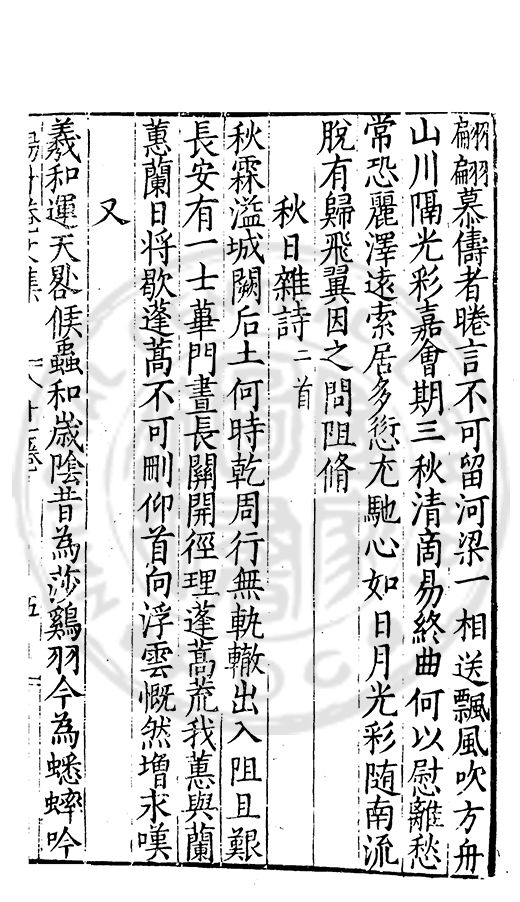 翩翩慕儔者睠言不可留河梁一相送飄風吹方舟
山川隔光彩嘉會期三秋清商易終曲何以慰離愁
常恐麗澤遠索居多愆尤馳心如日月光彩随南流
脫有歸飛翼因之問阻脩
秋日雜詩二首
秋霖溢城闕后土何時乾周行無軌轍出入阻且艱
長安有一士蓽門晝長關開徑理蓬蒿荒我蕙與蘭
蕙蘭日将歇蓬蒿不可刪仰首向浮雲慨然增永嘆
又
羲和運天晷候蟲和歲陰昔為莎鷄羽今為蟋蟀吟